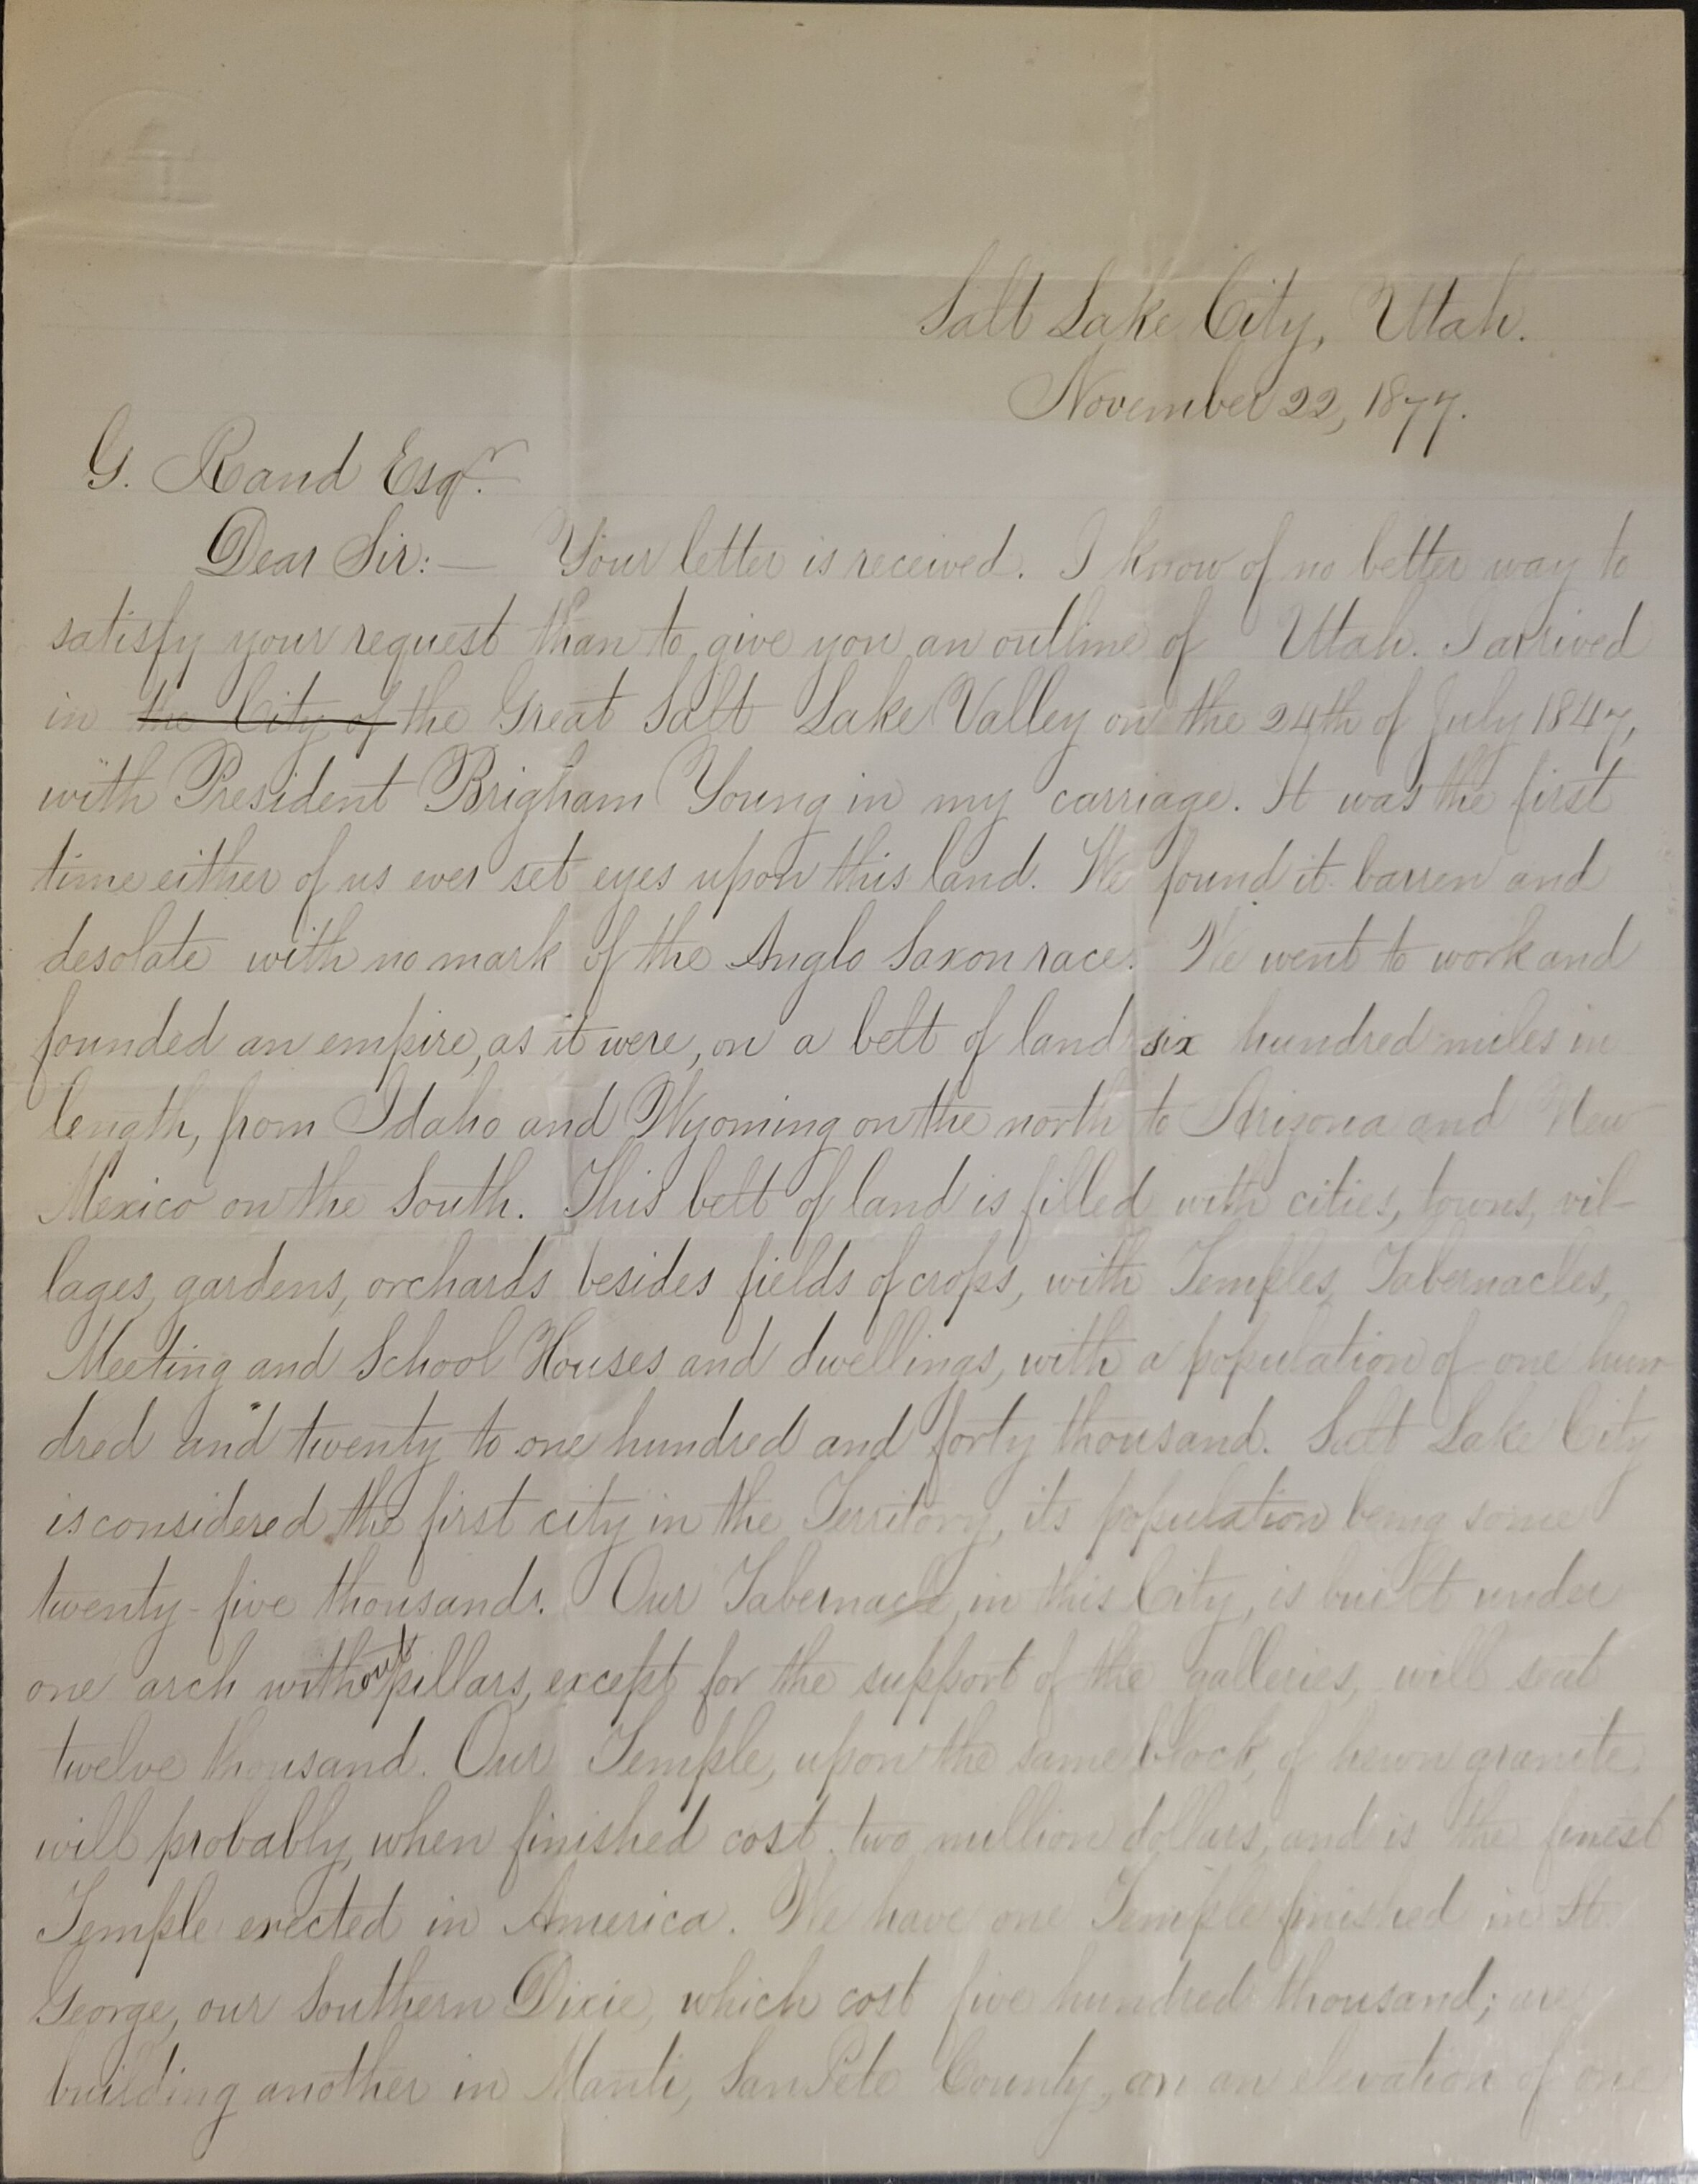 Salt Lake City, Utah.
November 22, 1877.
G. Rand Esqr.
Dear Sir:— Your letter is received. I know of no better way to
satisfy your request than to give you an outline of Utah. I arrived
in the City of the Great Salt Lake Valley on the 24th of July 1847,
with President Brigham Young in my carriage. It was the first
time either of us ever set eyes upon this land. We found it barren and
desolate with no mark of the Anglo Saxon race. We went to work and
founded an empire, as it were, on a belt of land six hundred miles in
length, from Idaho and Wyoming on the north to Arizona and New
Mexico on the South. This belt of land is filled with cities, towns, vil-
lages, gardens, orchards besides fields of crops, with Temples, Tabernacles,
Meeting and School Houses and dwellings, with a population of one hun-
dred and twenty to one hundred and forty thousand. Salt Lake City
is considered the first city in the Territory, its population being some
twenty-five thousands. Our Tabernacle, in this City, is built under
one arch without pillars, except for the support of the galleries, will seat
twelve thousand. Our Temple, upon the same block, of hewn granite,
will probably, when finished cost two million dollars, and is the finest
Temple erected in America. We have one Temple finished in St.
George, our Southern Dixie, which cost five hundred thousand; are
building another in Manti, SanPete County, on an elevation of one